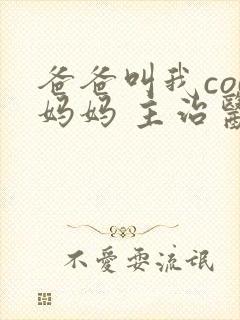 爸爸叫我co
妈妈 主治
不愛耍流氓